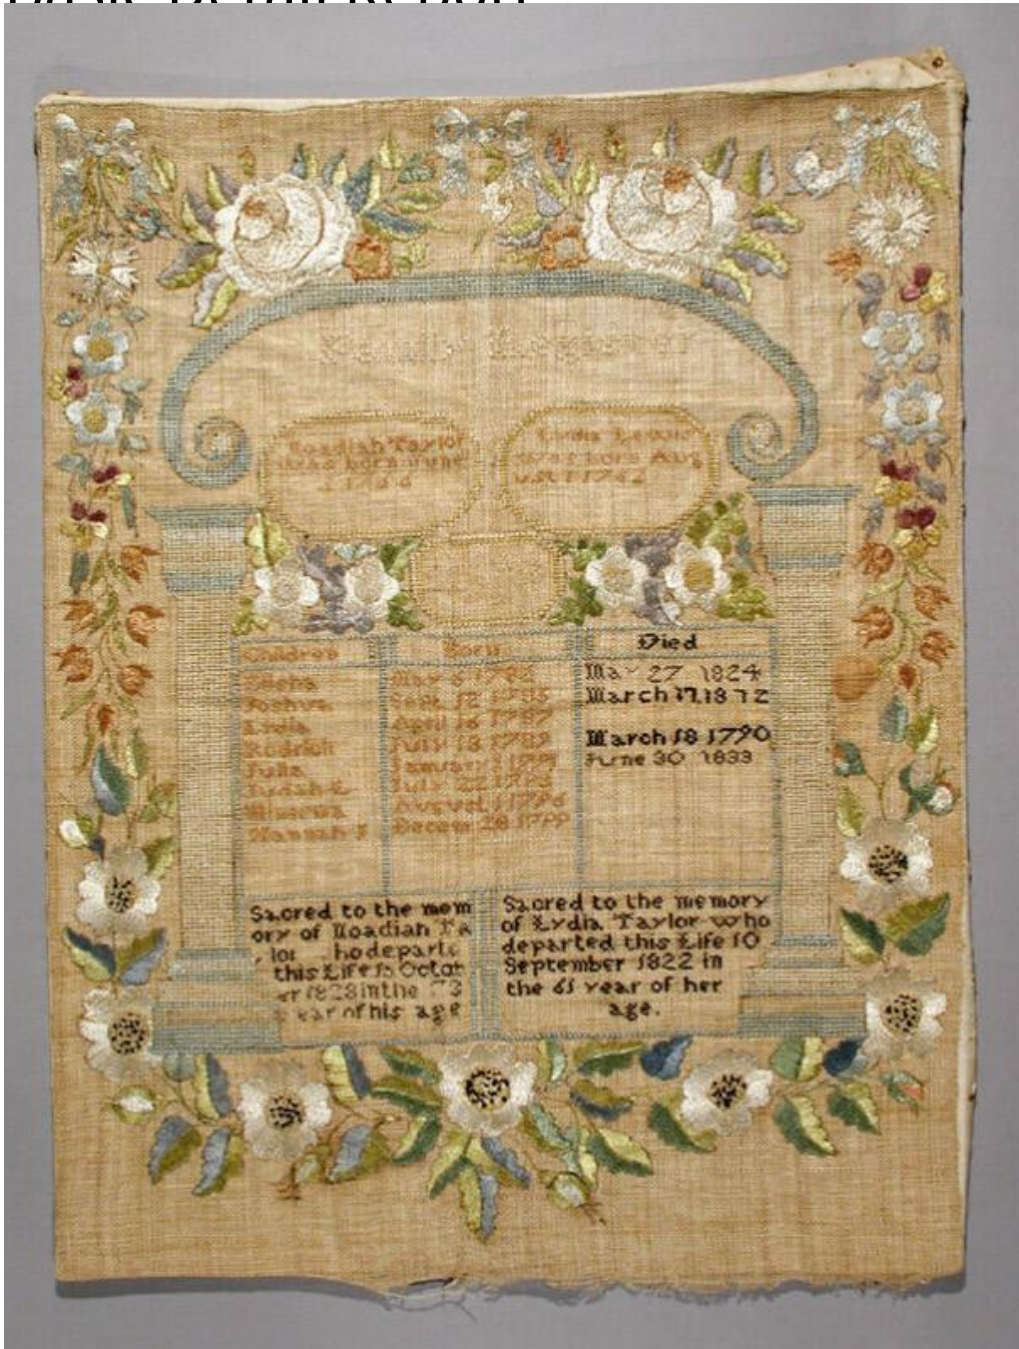 Family Register
Noadiah Taylor
was born June
Lydia Lewis
was born Aug
ust 1 1762
Children
Born
Died
May 6 1782
May 27 1824
Joshua
Sept 12 1785
March 17.1872
Lydia
April 16 1787
Rodrick
July 18 1789
March 18 1790
Julia
January 1 1791
June 30 1833
Judah L
July 22 1793
Minerva
August 1 1796
Hannah J
Decem 28 1799
Sacred to the mem
ory of Noadiah Ta
lor ho departe
this Life 15 Octob
er 1828 in the 73
ear of his age
Sacred to the memory
of Lydia Taylor who
departed this Life 10
September 1822 in
the 61 year of her
age.